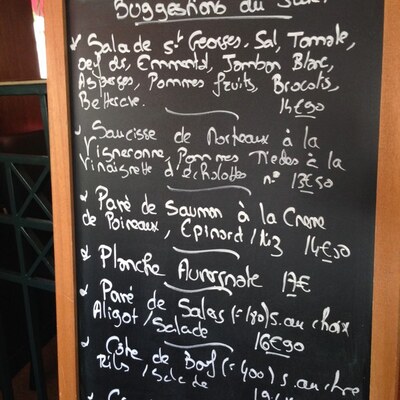 Suggestions du
Salade St Georges. Sal, Tomate,
oeuf dur, Emmental, Jambon Blanc,
Asperges, Pommes fruits, Brocolis,
Betterave. 14€90
Saucisse de Morteaux à la
Vigneronne, Pommes Tiedes à la
Vinaigrette d'échalottes 13€50
Pavé de Saumon à la Creme
de Poireaux, Epinard / Riz 14€50
Planche Auvergnate 17€
Pavé de Salers (=180) S. au choix
Aligot / Salade 16€90
Côte de Boeuf (=400) S. au
Salade